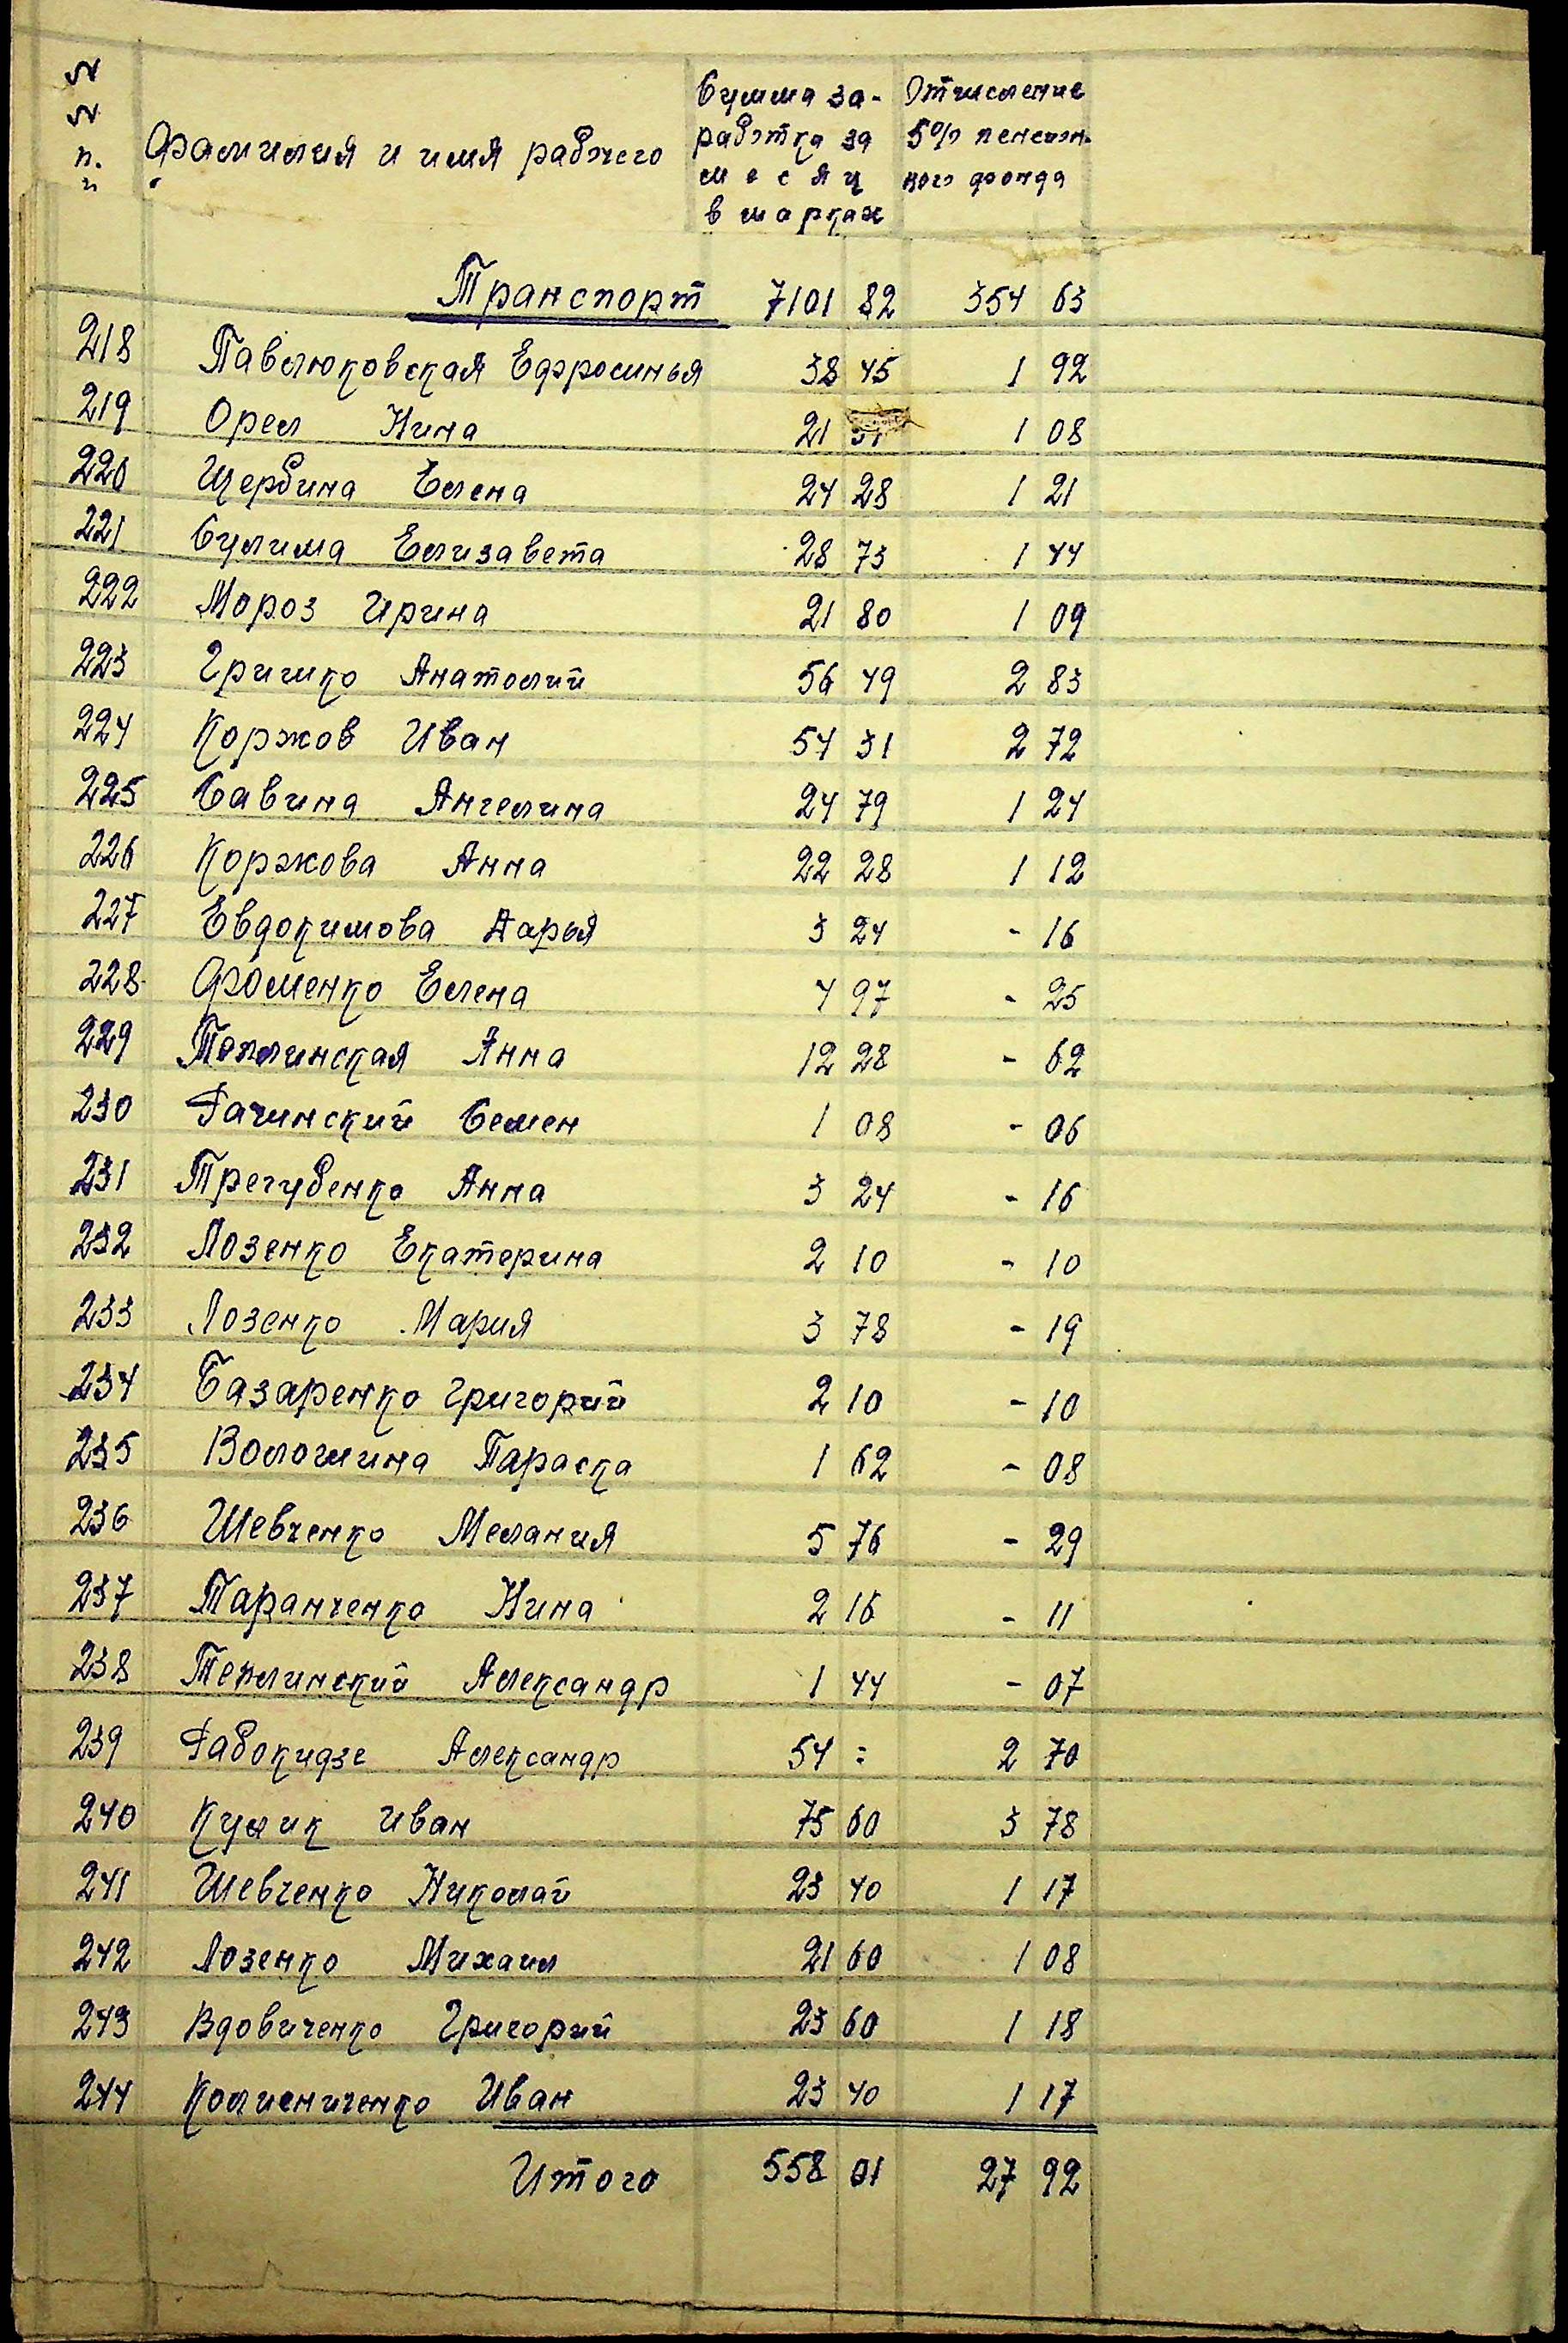 №
№
п.
п
Фамилия и имя рабочего
Сумма за-
работка за
месяц
в марках
Отчисление
5% пенсион-
ного фонда
Транспорт 7101 82 354 63
218 Павлюковская Ефросинья 38 45 1 92
219 Орел Нина 21 1 08
220 Щербина Елена 24 28 1 21
221 Сулима Елизавета 28 73 1 44
222 Мороз Ирина 21 80 1 09
223 Гришко Анатолий 56 49 2 83
224 Коржов Иван 54 31 2 72
225 Савина Ангелина 24 79 1 24
226 Коржова Анна 22 28 1 12
227 Евдокимова Дарья 3 24 - 16
228 Фоменко Елена 4 97 - 25
229 Теплинская Анна 12 28 - 62
230 Гачинский Семен 1 08 - 06
231 Трегубенко Анна 3 24 - 16
232 Лозенко Екатерина 2 10 - 10
233 Лозенко Мария 3 78 - 19
234 Базаренко Григорий 2 10 - 10
235 Волошина Параска 1 62 - 08
236 Шевченко Мелания 5 76 - 29
237 Таранченко Нина 2 16 - 11
238 Теплинский Александр 1 44 - 07
239 Габокидзе Александр 54 = 2 70
240 Кулик Иван 75 60 3 78
241 Шевченко Николай 23 40 1 17
242 Лозенко Михаил 21 60 1 08
243 Вдовиченко Григорий 23 60 1 18
244 Колисниченко Иван 23 40 1 17
Итого 558 01 27 92